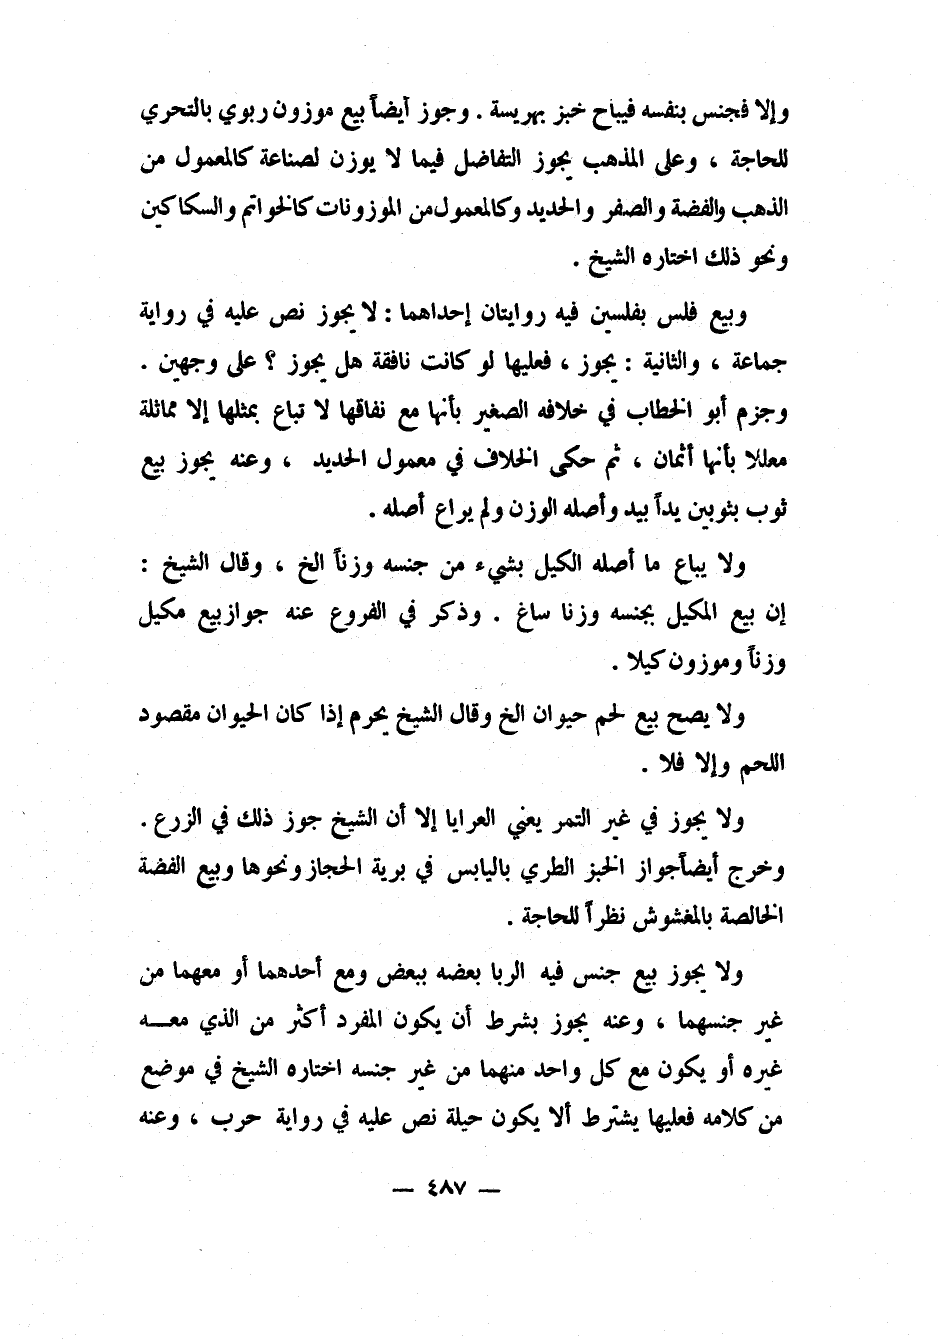 وإلا فجنس بنفسه فيباح خبز بهريسة . وجوز أيضاً بيع موزون ربوي بالتحري
للحاجة ، وعلى المذهب يجوز التفاضل فيما لا يوزن لصناعة كالمعمول من
الذهب والفضة والصفر والحديد وكالمعمول من الموزونات كالخواتم والسكاكين
ونحو ذلك اختاره الشيخ .
وبيع فلس بفلسين فيه روايتان إحداهما : لا يجوز نص عليه في رواية
جماعة ، والثانية : يجوز ، فعليها لو كانت نافقة هل يجوز ؟ على وجهين .
وجزم أبو الخطاب في خلافه الصغير بأنها مع نفاقها لا تباع بمثلها إلا مماثلة
معللا بأنها أثمان ، ثم حكى الخلاف في معمول الحديد ، وعنه يجوز بيع
ثوب بثوبين يداً بيد وأصله الوزن ولم يراع أصله .
ولا يباع ما أصله الكيل بشيء من جنسه وزناً الخ ، وقال الشيخ :
إن بيع المكيل بجنسه وزنا ساغ . وذكر في الفروع عنه جواز بيع مكيل
وزناً وموزون كيلا .
ولا يصح بيع لحم حيوان الخ وقال الشيخ يحرم إذا كان الحيوان مقصود
اللحم وإلا فلا .
ولا يجوز في غير التمر يعني العرايا إلا أن الشيخ جوز ذلك في الزرع .
وخرج أيضاً جواز الخبز الطري باليابس في برية الحجاز ونحوها وبيع الفضة
الخالصة بالمغشوش نظراً للحاجة .
ولا يجوز بيع جنس فيه الربا بعضه ببعض ومع أحدهما أو معهما من
غير جنسهما ، وعنه يجوز بشرط أن يكون المفرد أكثر من الذي معـــه
غيره أو يكون مع كل واحد منهما من غير جنسه اختاره الشيخ في موضع
من كلامه فعليها يشترط ألا يكون حيلة نص عليه في رواية حرب ، وعنه
— ٤٨٧ —